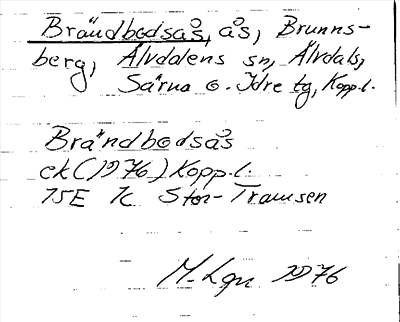 Brändbodsås, ås, Brunns-
berg, Älvdalens sn, Älvdals,
Särna o. Idre tg, Kopp. l.
Brändbodsås
ek (1976) Kopp. l.
15E 7c Stor-Tramsen
M. Lgn 1976